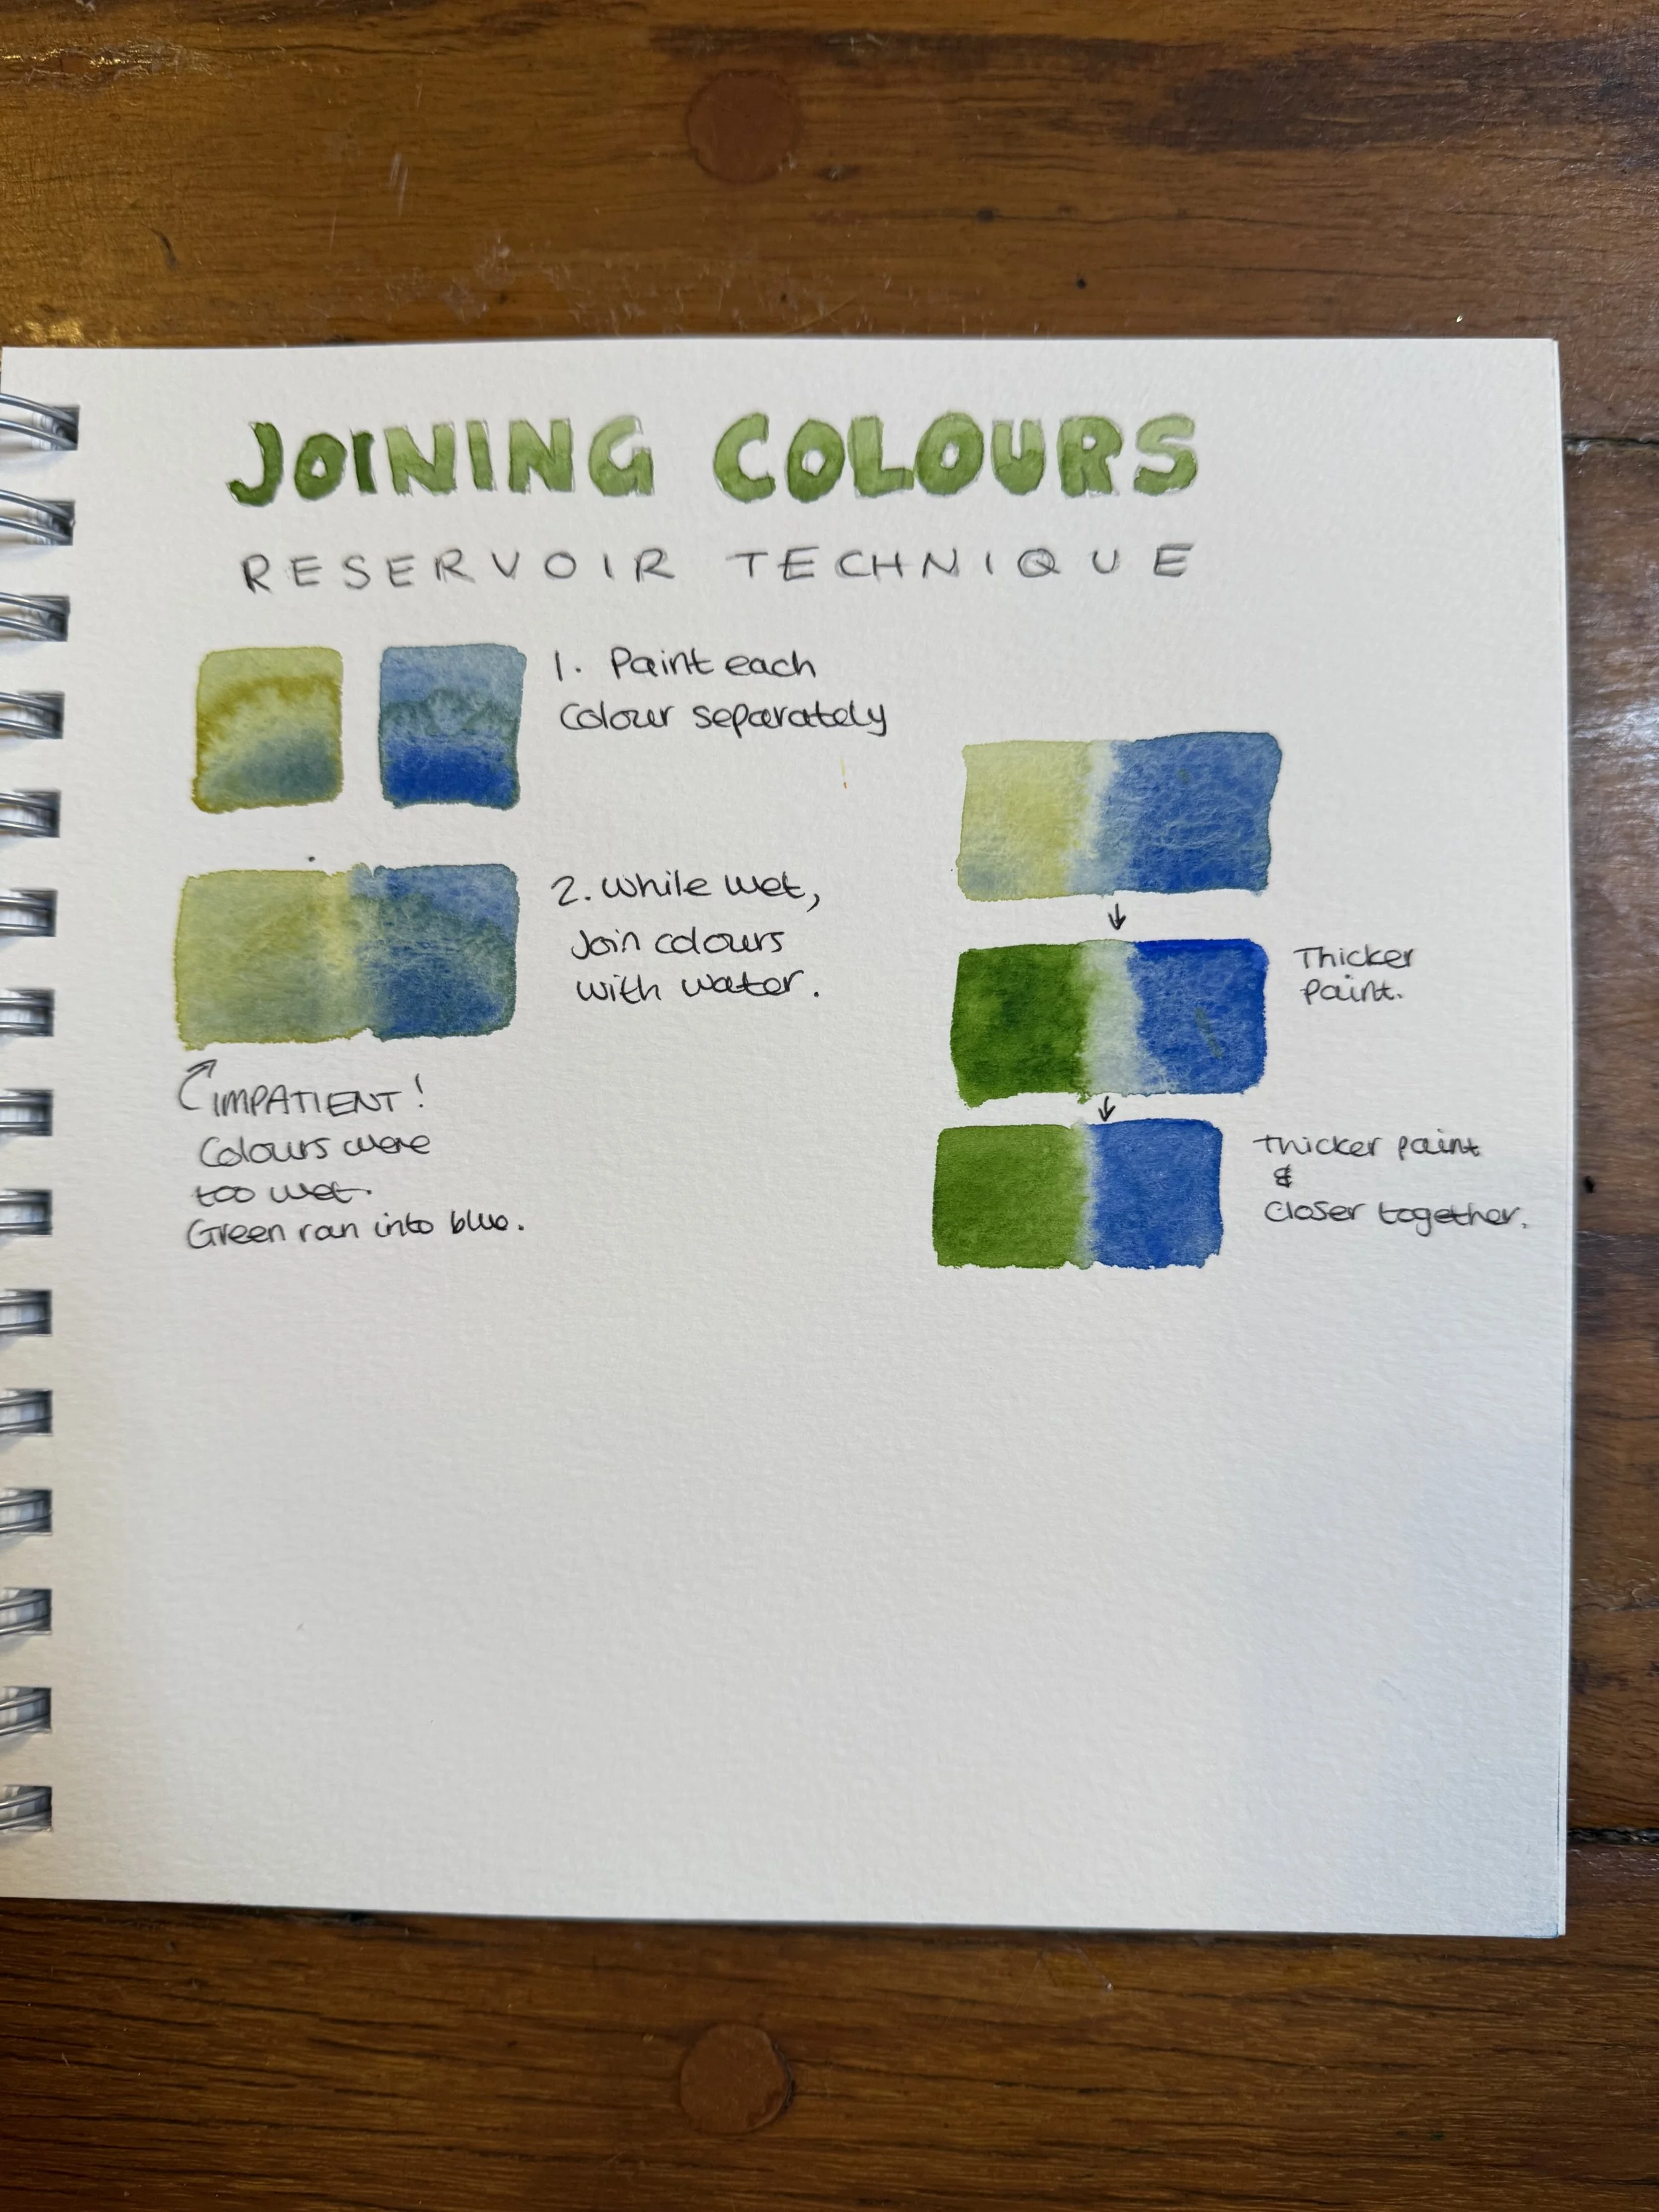 JOINING COLOURS
RESERVOIR TECHNIQUE
1. Paint each
Colour separately
2. While wet,
Join colours
with water.
IMPATIENT!
Colours were
too wet.
Green ran into blue.
Thicker
paint.
Thicker paint
&
Closer together.